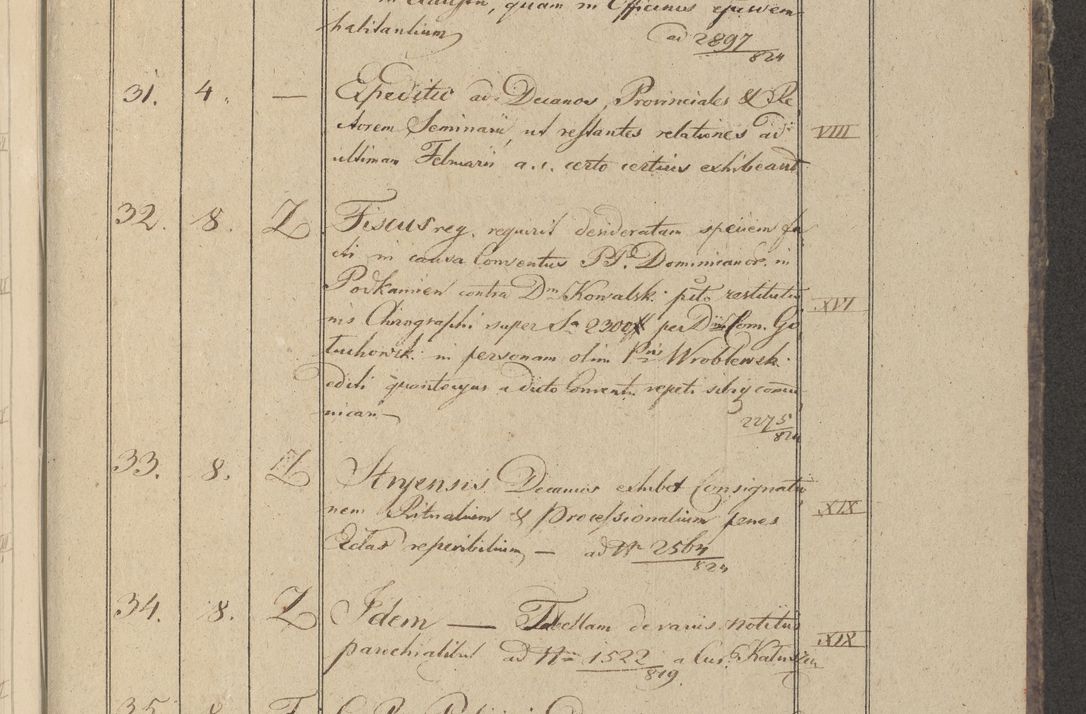 quam in Officinis ejusdem
habitantium ad 2897/824
31. 4. — Expeditio ad Decanos, Provinciales & Re
ctorem Seminarii, ut restantes relationes ad VIII
ultimam Februarii a. c. certo certius exhibeant
32. 8. Z Fiscus reg. requirit desideratam speciem fa
cti in causa Conventus PP. Dominicanor. in
Podkamien contra Dnm Kowalski pto restitutio XVI
nis Chirographi super Sa 2300 f per Dnm Com. Go
luchowski in personam olim Pris Wroblewski
editi quantocyus a dicto Conventu repeti sibiq comu
nicari — 2275/824
33. 8. Z Stryensis Decanus exhibet Consignatio
nem Ritualium & Processionalium penes XIX
Ecclas reperibilium — ad Nr 2564/824
34. 8. Z Idem — Tabellam de variis notitiis
parochialibus ad Nr 1522/819 a Cus. XIX
35. 8.